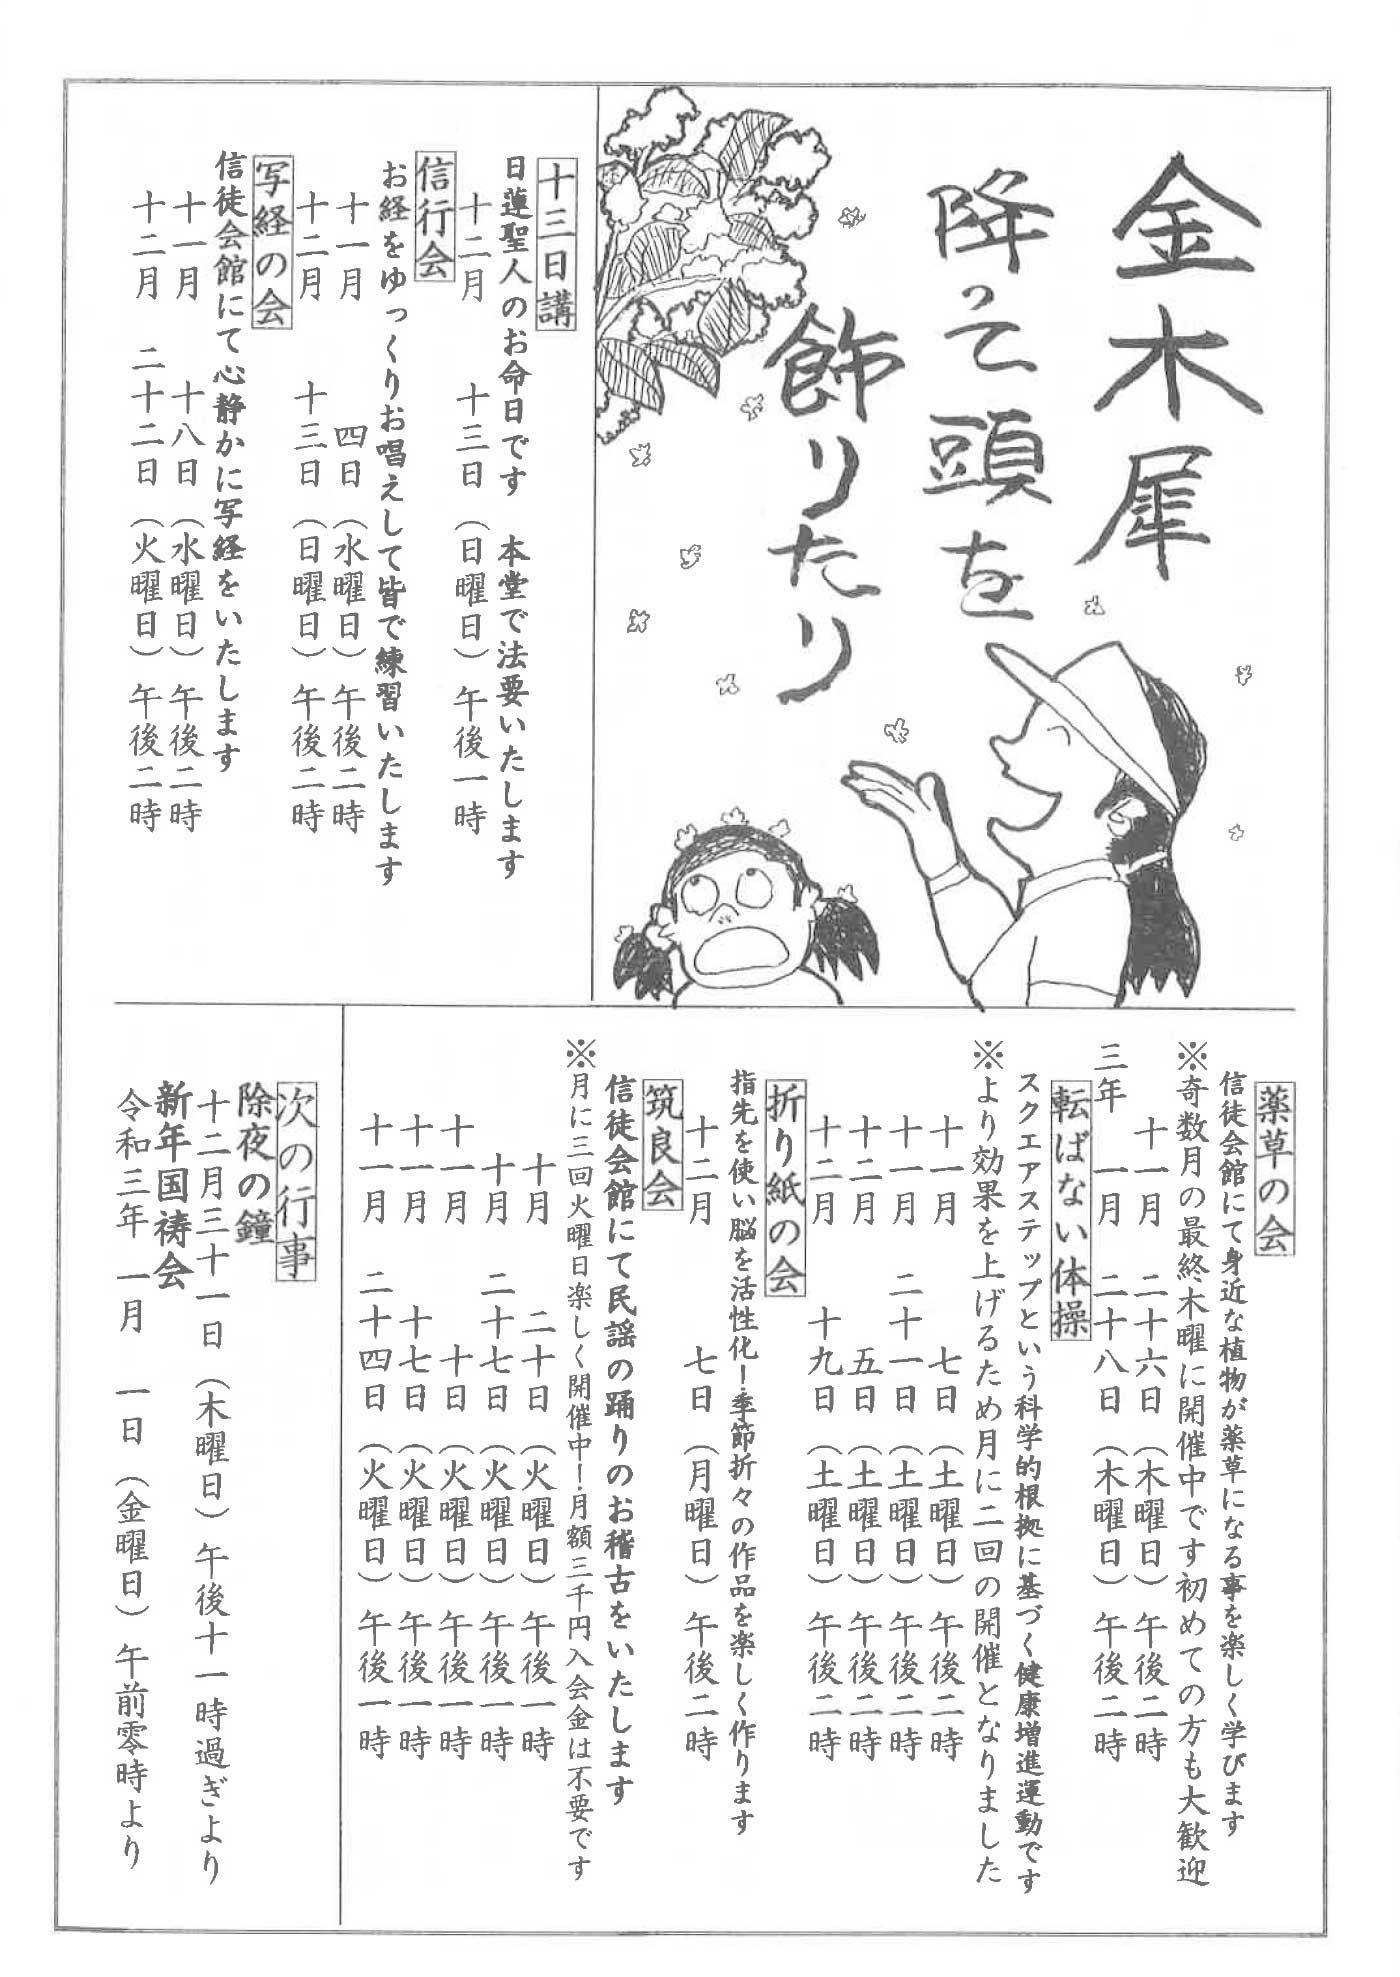 金木犀
降って頭を
飾りたり
十三日講
日蓮聖人のお命日です　本堂で法要いたします
十二月　十三日（日曜日）午後一時
信行会
お経をゆっくりお唱えして皆で練習いたします
十一月　四日（水曜日）午後二時
十二月　十三日（日曜日）午後二時
写経の会
信徒会館にて心静かに写経をいたします
十一月　十八日（水曜日）午後二時
十二月　二十二日（火曜日）午後二時
薬草の会
信徒会館にて身近な植物が薬草になる事を楽しく学びます
※奇数月の最終木曜に開催中です初めての方も大歓迎
十一月　二十六日（木曜日）午後二時
三年　一月　二十八日（木曜日）午後二時
転ばない体操
スクエアステップという科学的根拠に基づく健康増進運動です
※より効果を上げるため月に二回の開催となりました
十一月　七日（土曜日）午後二時
十一月　二十一日（土曜日）午後二時
十二月　五日（土曜日）午後二時
十二月　十九日（土曜日）午後二時
折り紙の会
指先を使い脳を活性化！季節折々の作品を楽しく作ります
十二月　七日（月曜日）午後二時
筑良会
信徒会館にて民謡の踊りのお稽古をいたします
※月に三回火曜日楽しく開催中！月額三千円入会金は不要です
十月　二十日（火曜日）午後一時
十月　二十七日（火曜日）午後一時
十一月　十日（火曜日）午後一時
十一月　十七日（火曜日）午後一時
十一月　二十四日（火曜日）午後一時
次の行事
除夜の鐘
十二月三十一日（木曜日）午後十一時過ぎより
新年国祷会
令和三年　一月　一日（金曜日）午前零時より